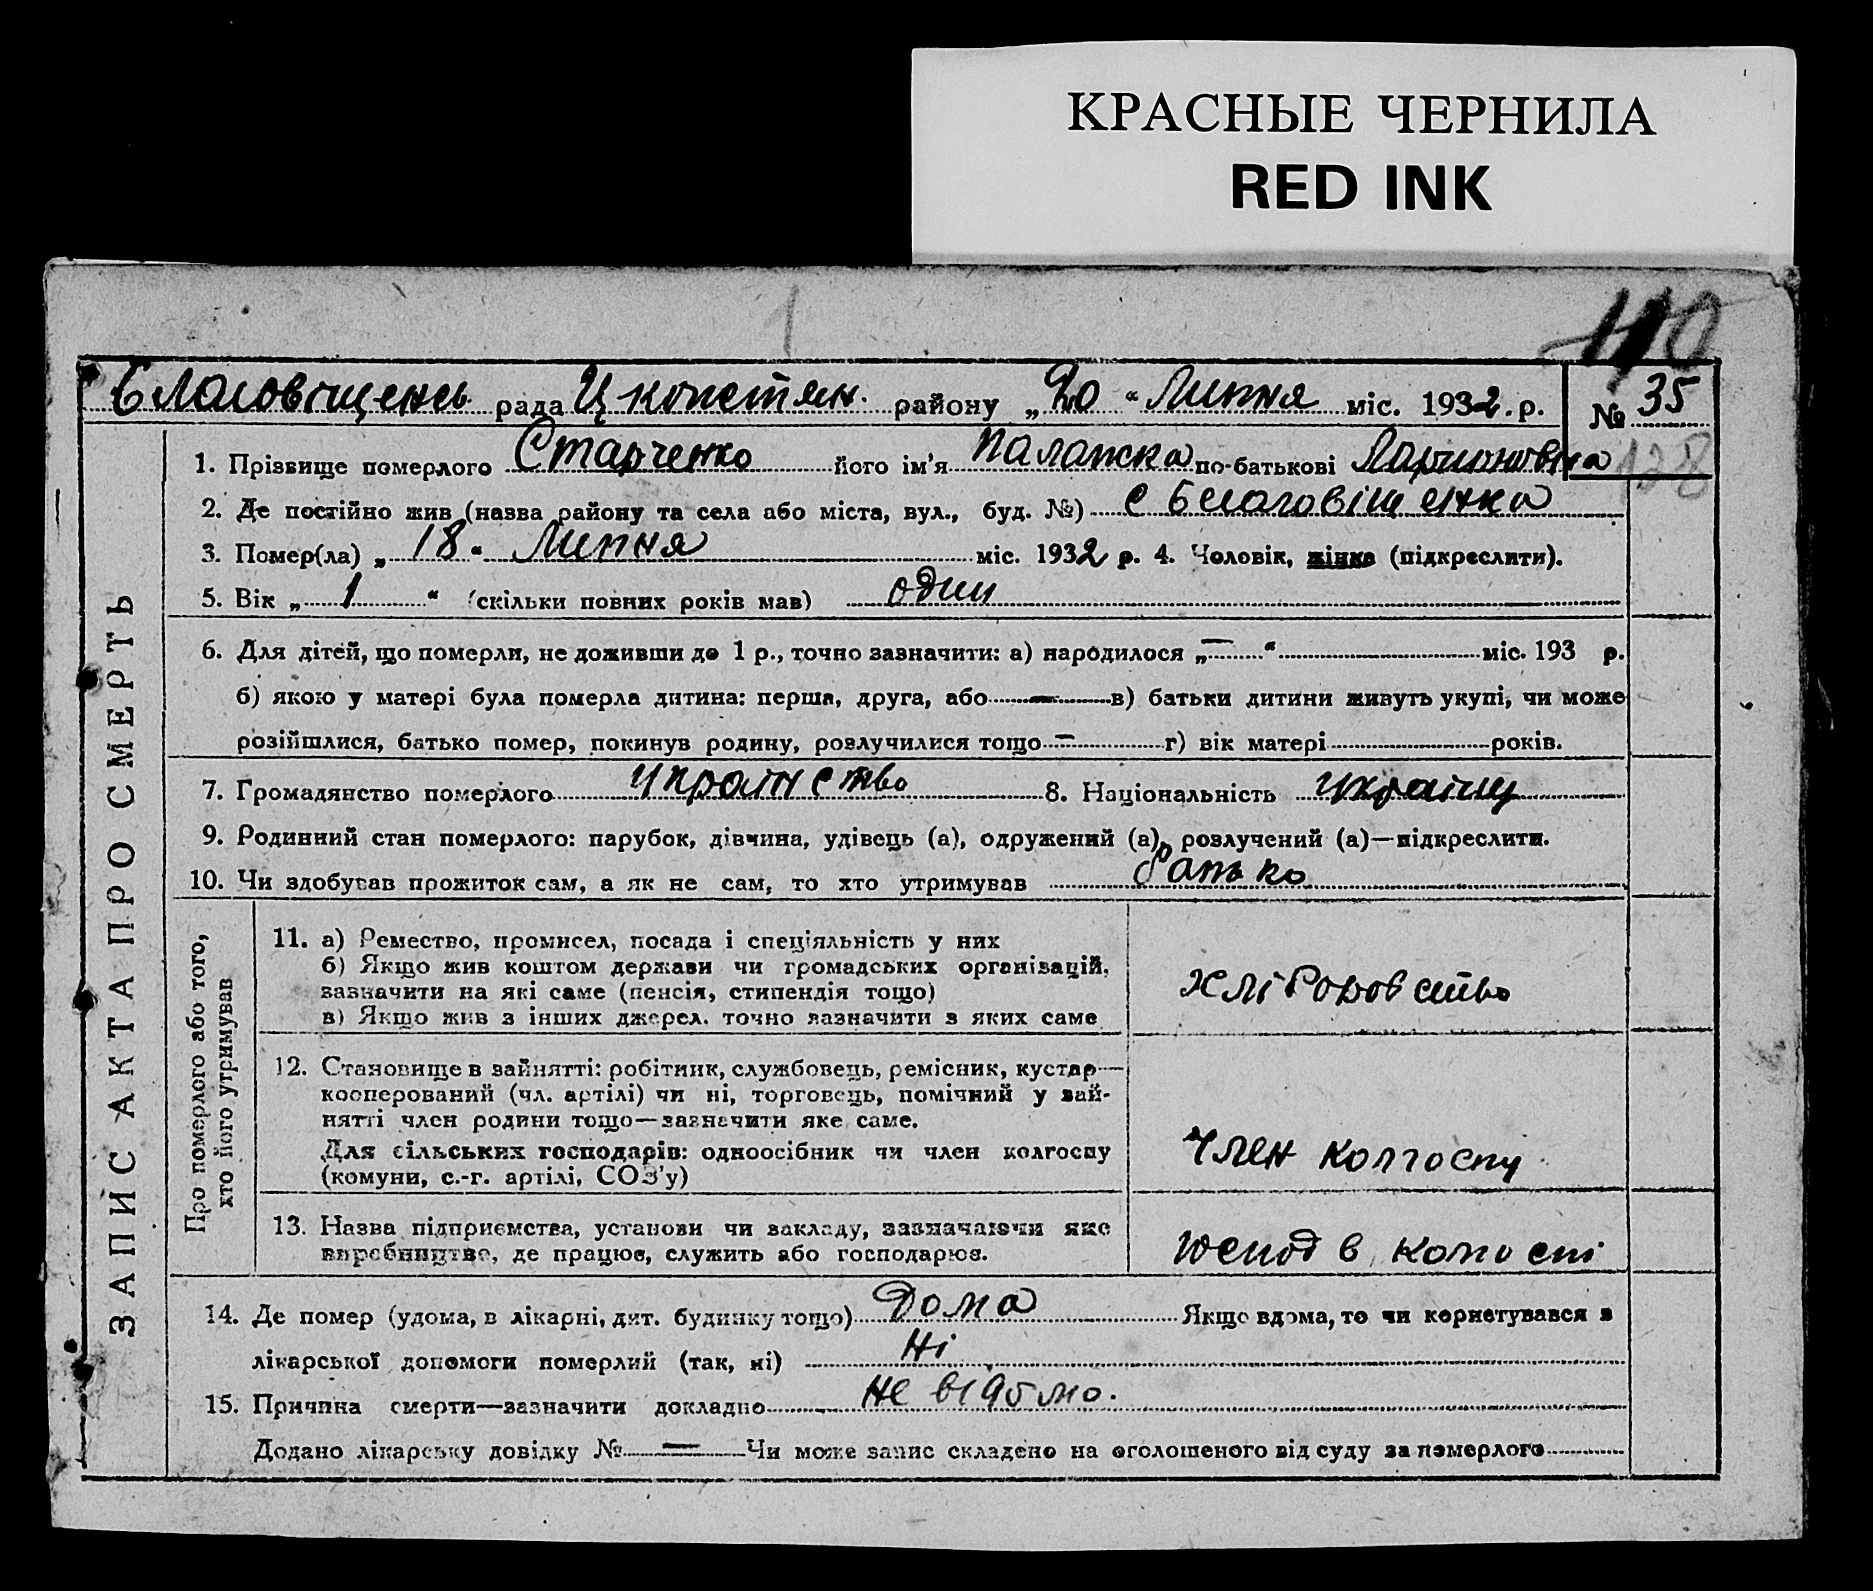 КРАСНЫЕ ЧЕРНИЛА
RED INK
1
110
Благовіщенсь рада Ц констян. району „20“ Липня міс. 1932 р. № 35
1. Прізвище померлого Старченко його ім'я Палажка по-батькові Ларионовна 128
2. Де постійно жив (назва району та села або міста, вул., буд. №) с Благовіщенка
3. Помер(ла) „18“ Липня міс. 1932 р. 4. Чоловік, жінка (підкреслити).
5. Вік „1“ (скільки повних років мав) один
6. Для дітей, що померли, не доживши до 1 р., точно зазначити: а) народилося „—“ міс. 193 р.
б) якою у матері була померла дитина: перша, друга, або — в) батьки дитини живуть укупі, чи може
розійшлися, батько помер, покинув родину, розлучилися тощо — г) вік матері років.
7. Громадянство померлого 8. Національність
9. Родинний стан померлого: парубок, дівчина, удівець (а), одружений (а), розлучений (а)—підкреслити.
10. Чи здобував прожиток сам, а як не сам, то хто утримував батько
ЗАПИС АКТА ПРО СМЕРТЬ
Про померлого або того,
хто його утримував
11. а) Ремество, промисел, посада і спеціяльність у них
б) Якщо жив коштом держави чи громадських організацій,
зазначити на які саме (пенсія, стипендія тощо)
в) Якщо жив з інших джерел, точно зазначити з яких саме
хліборобство
12. Становище в зайнятті: робітник, службовець, ремісник, кустар—
кооперований (чл. артілі) чи ні, торговець, помічний у зай-
нятті член родини тощо—зазначити яке саме.
Для сільських господарів: одноосібник чи член колгоспу
(комуни, с.-г. артілі, СОЗ'у)
Член колгоспу
13. Назва підприємства, установи чи закладу, зазначаючи яке
виробництво, де працює, служить або господарює.
в колгоспі
14. Де помер (удома, в лікарні, дит. будинку тощо) Дома Якщо вдома, то чи користувався з
лікарської допомоги померлий (так, ні) Ні
15. Причина смерти—зазначити докладно не відомо.
Додано лікарську довідку № — Чи може запис складено на оголошеного від суду за померлого